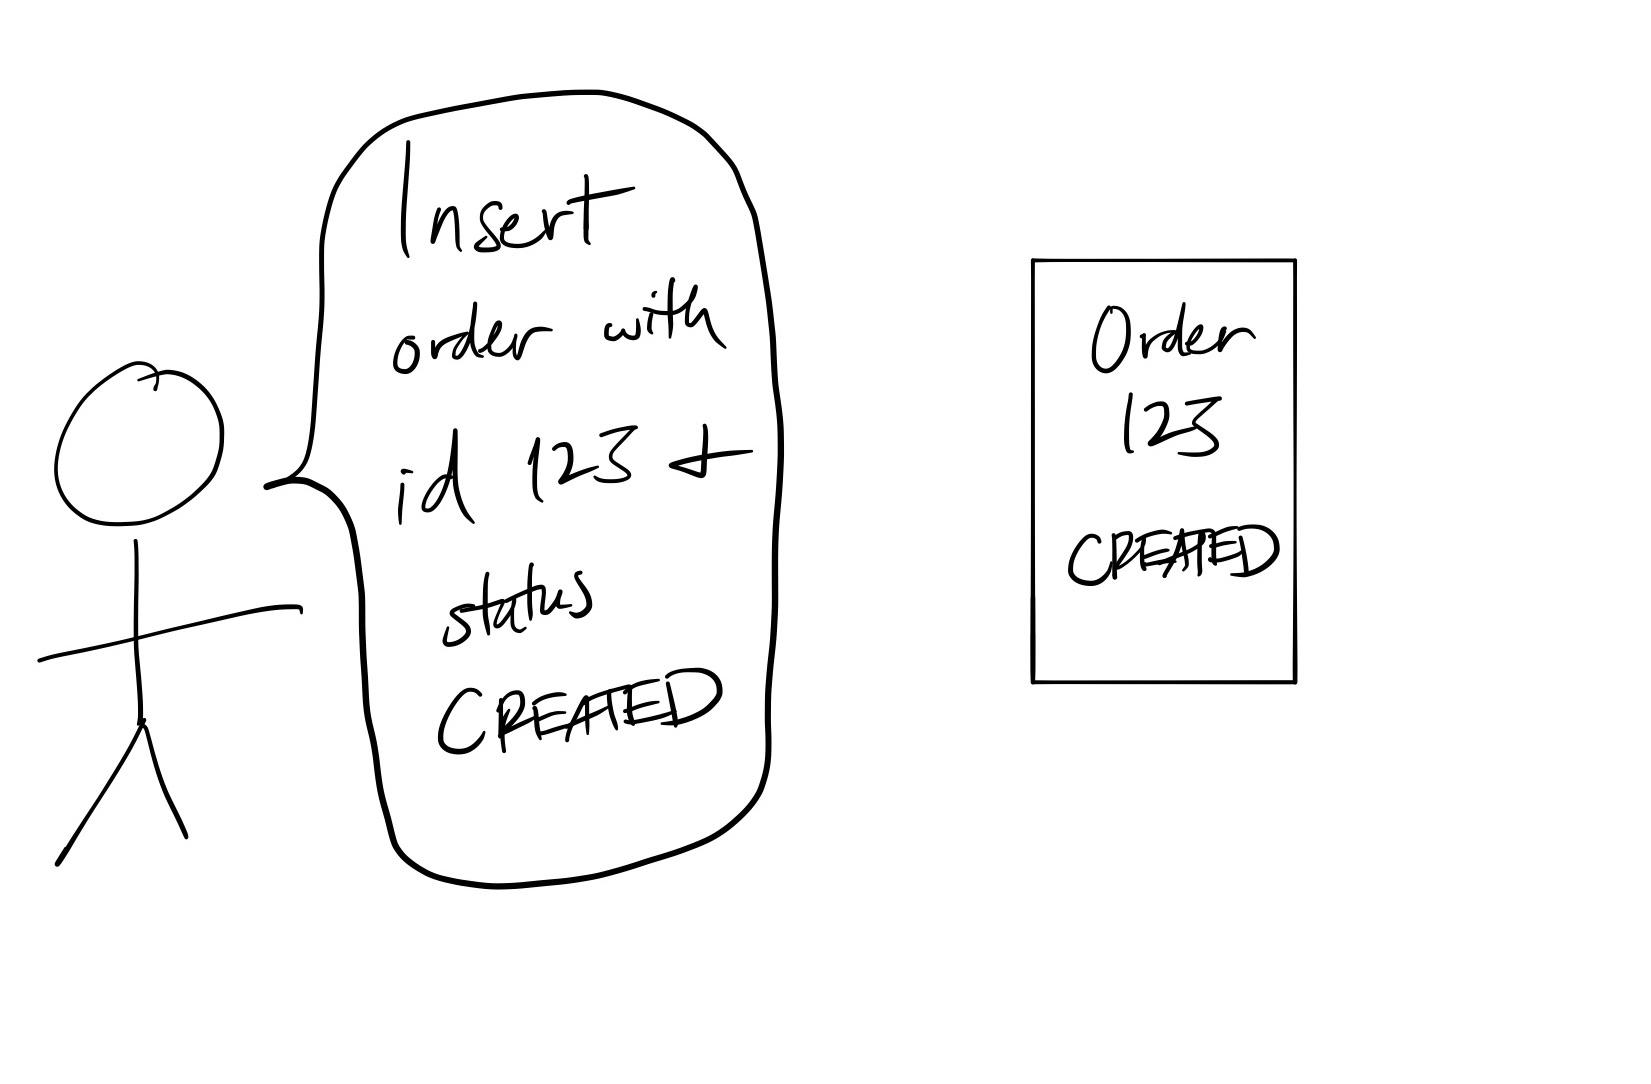 Insert
order with
id 123 +
status
CREATED
Order
123
CREATED